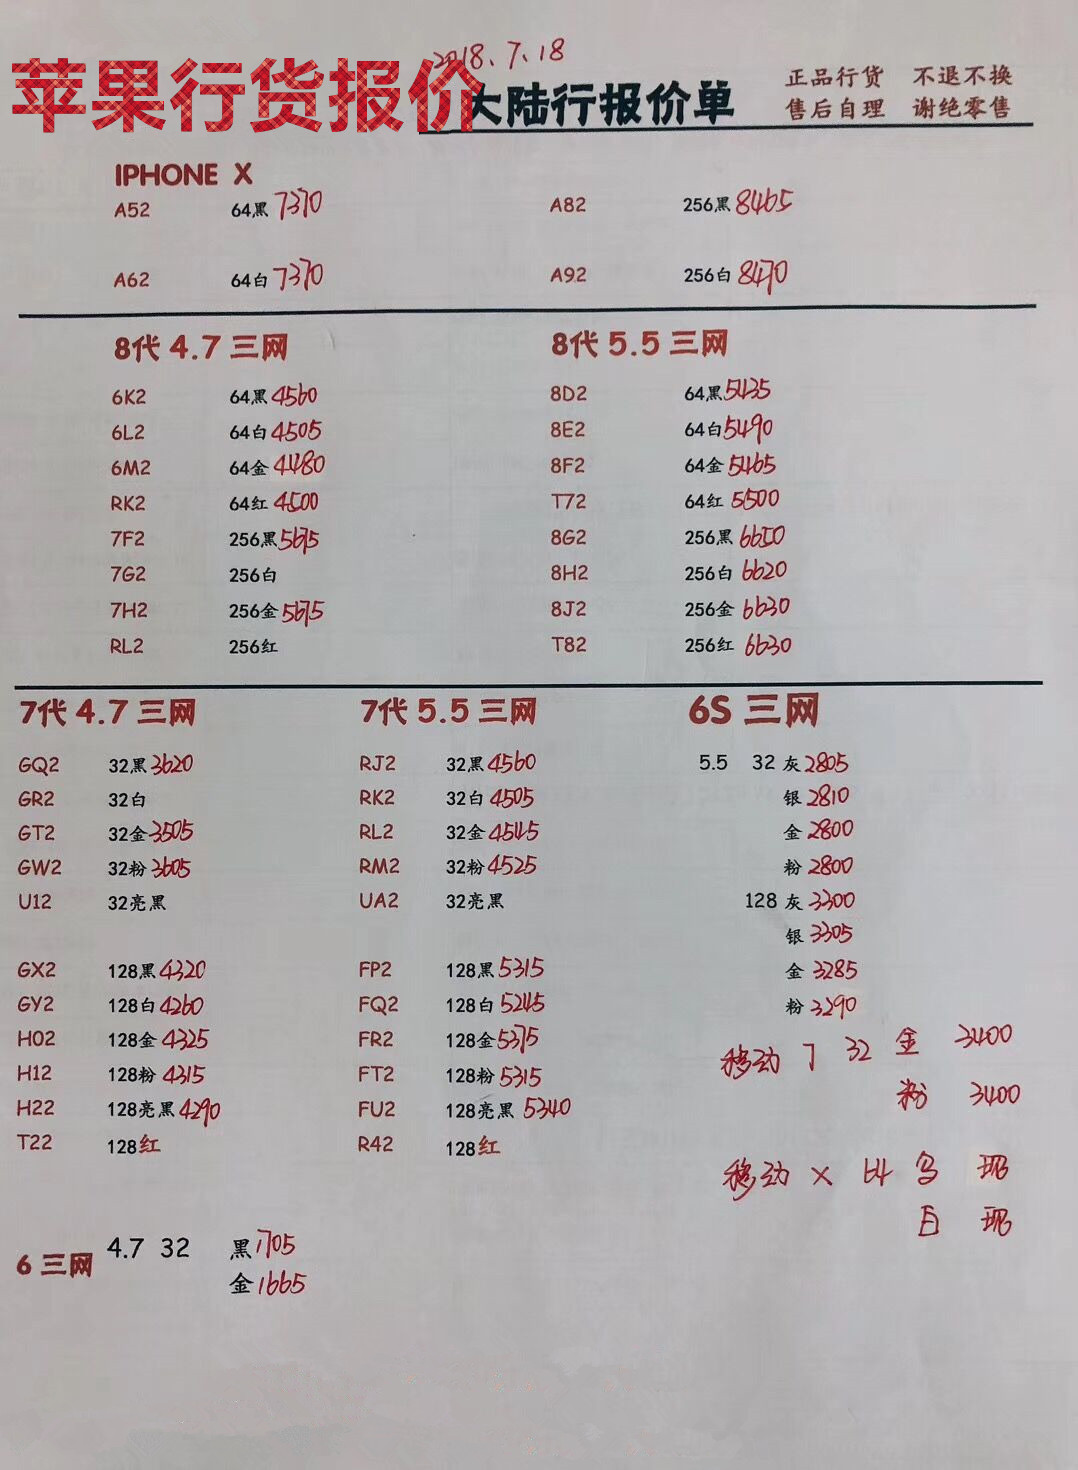 2018.7.18
苹果行货报价
大陆行报价单
正品行货 不退不换
售后自理 谢绝零售
IPHONE X
A52 64黑 7370 A82 256黑 8465
A62 64白 7370 A92 256白 8470
8代 4.7 三网 8代 5.5 三网
6K2 64黑 4560 8D2 64黑 5435
6L2 64白 4505 8E2 64白 5490
6M2 64金 4480 8F2 64金 5465
RK2 64红 4500 T72 64红 5500
7F2 256黑 5675 8G2 256黑 6650
7G2 256白 8H2 256白 6620
7H2 256金 5675 8J2 256金 6630
RL2 256红 T82 256红 6630
7代 4.7 三网 7代 5.5 三网 6S 三网
GQ2 32黑 3620 RJ2 32黑 4560 5.5 32 灰 2805
GR2 32白 RK2 32白 4505 银 2810
GT2 32金 3505 RL2 32金 4545 金 2800
GW2 32粉 3605 RM2 32粉 4525 粉 2800
U12 32亮黑 UA2 32亮黑 128 灰 3300
银 3305
GX2 128黑 4320 FP2 128黑 5315 金 3285
GY2 128白 4260 FQ2 128白 5245 粉 3290
H02 128金 4325 FR2 128金 5375 移动 7 32 金 3400
H12 128粉 4315 FT2 128粉 5315 粉 3400
H22 128亮黑 4290 FU2 128亮黑 5340
T22 128红 R42 128红
移动 X 64 白
6 三网 4.7 32 黑 1705
金 1665